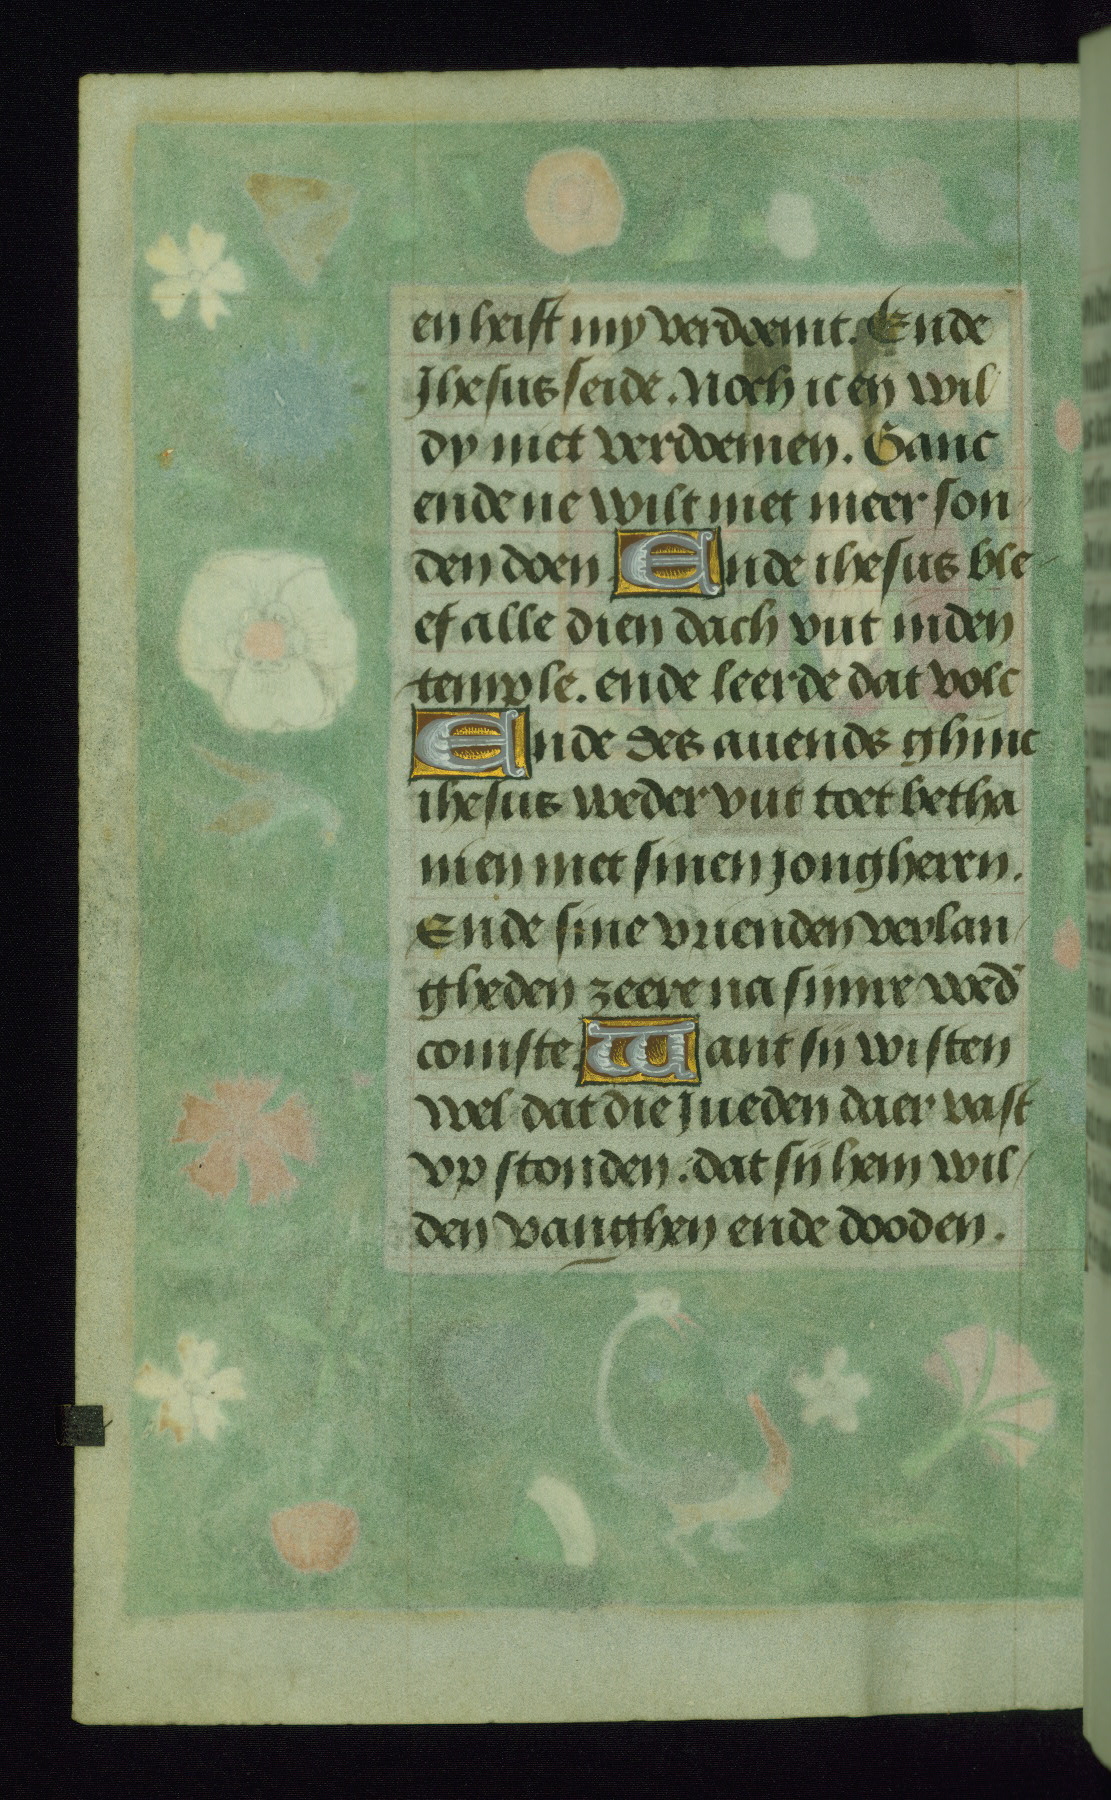 en heift my verdoemt. Ende
Jhesus seide. Noch ic en wil
dy niet verdoemen. Ganc
ende ne wilt niet meer son
den doen. Ende ihesus ble
ef alle dien dach vut inden
temple. ende leerde dat volc
Ende des auends ghinc
ihesus weder vut toet betha
nien met sinen jongheren.
Ende sine vrienden verlan
gheden zeere na sijnre wed̄
comste. Want sij wisten
wel dat die Jueden daer vast
vp stonden. dat sij hem wil
den vanghen ende dooden.